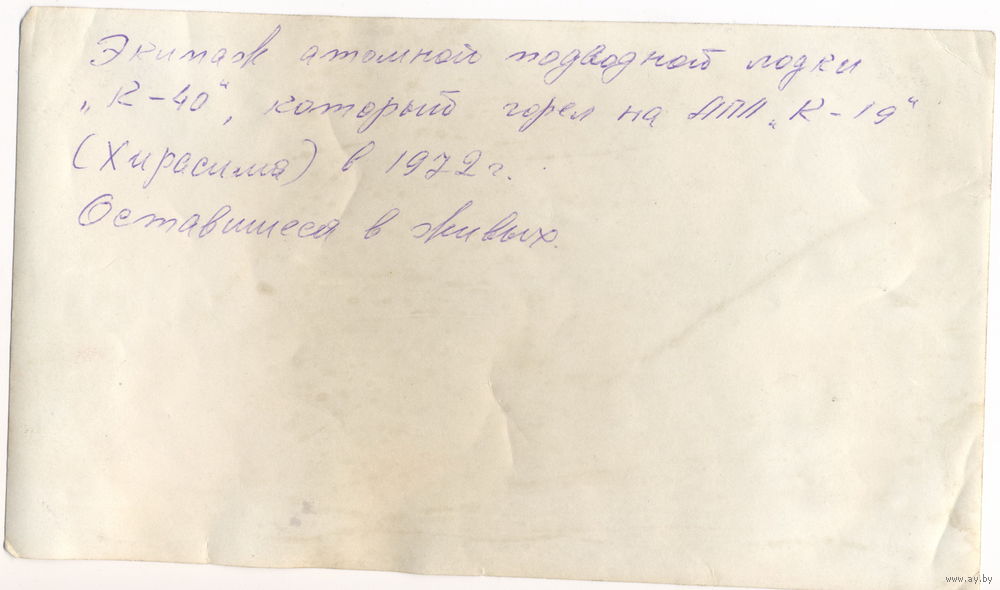 Экипаж атомной подводной лодки
„К-40“, который горел на АПЛ „К-19“
(Хирасима) в 1972 г.
Оставшиеся в живых.
www.ay.by